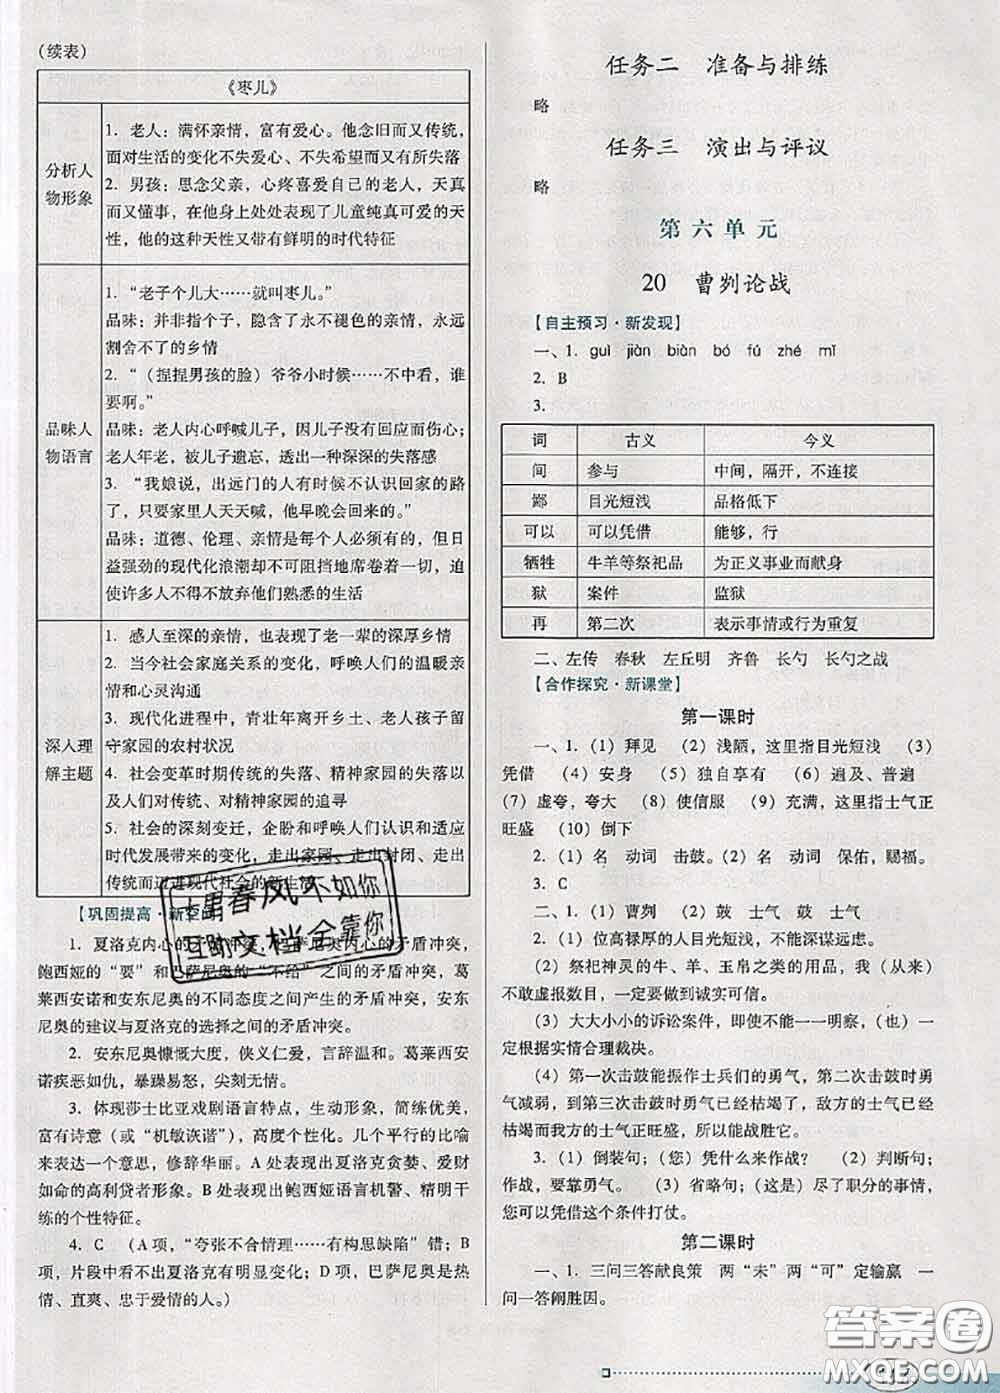 （续表）
《枣儿》
分析人
物形象
1. 老人：满怀亲情，富有爱心。他念旧而又传统，
面对生活的变化不失爱心、不失希望而又有所失落
2. 男孩：思念父亲，心疼喜爱自己的老人，天真
而又懂事，在他身上处处表现了儿童纯真可爱的天
性，他的这种天性又带有鲜明的时代特征
品味人
物语言
1. “老子个儿大……就叫枣儿。”
品味：并非指个子，隐含了永不褪色的亲情，永远
割舍不了的乡情
2. “（捏捏男孩的脸）爷爷小时候……不中看，谁
要啊。”
品味：老人内心呼喊儿子，因儿子没有回应而伤心；
老人年老，被儿子遗忘，透出一种深深的失落感
3. “我娘说，出远门的人有时候不认识回家的路
了，只要家里人天天喊，他早晚会回来的。”
品味：道德、伦理、亲情是每个人必须有的，但日
益强劲的现代化浪潮却不可阻挡地席卷着一切，迫
使许多人不得不放弃他们熟悉的生活
深入理
解主题
1. 感人至深的亲情，也表现了老一辈的深厚乡情
2. 当今社会家庭关系的变化，呼唤人们的温暖亲
情和心灵沟通
3. 现代化进程中，青壮年离开乡土、老人孩子留
守家园的农村状况
4. 社会变革时期传统的失落、精神家园的失落以
及人们对传统、对精神家园的追寻
5. 社会的深刻变迁，企盼和呼唤人们认识和适应
时代发展带来的变化，走出家园、走出封闭、走出
传统而迈进现代社会的新生活
【巩固提高·新空间】
1. 夏洛克内心的矛盾冲突，安东尼奥内心的矛盾冲突，
鲍西娅的“要”和巴萨尼奥的“不给”之间的矛盾冲突，葛
莱西安诺和安东尼奥的不同态度之间产生的矛盾冲突，安东
尼奥的建议与夏洛克的选择之间的矛盾冲突。
2. 安东尼奥慷慨大度，侠义仁爱，言辞温和。葛莱西安
诺疾恶如仇，暴躁易怒，尖刻无情。
3. 体现莎士比亚戏剧语言特点，生动形象，简练优美，
富有诗意（或“机敏诙谐”），高度个性化。几个平行的比喻
来表达一个意思，修辞华丽。A 处表现出夏洛克贪婪、爱财
如命的高利贷者形象。B 处表现出鲍西娅语言机警、精明干
练的个性特征。
4. C （A 项，“夸张不合情理……有构思缺陷”错；B
项，片段中看不出夏洛克有明显变化；D 项，巴萨尼奥是热
情、直爽、忠于爱情的人。）
任务二 准备与排练
略
任务三 演出与评议
略
第六单元
20 曹刿论战
【自主预习·新发现】
一、1. guì jiàn biàn bó fú zhé mǐ
2. B
3.
词 古义 今义
间 参与 中间，隔开，不连接
鄙 目光短浅 品格低下
可以 可以凭借 能够，行
牺牲 牛羊等祭祀品 为正义事业而献身
狱 案件 监狱
再 第二次 表示事情或行为重复
二、左传 春秋 左丘明 齐鲁 长勺 长勺之战
【合作探究·新课堂】
第一课时
一、1.（1）拜见 （2）浅陋，这里指目光短浅 （3）
凭借 （4）安身 （5）独自享有 （6）遍及、普遍
（7）虚夸，夸大 （8）使信服 （9）充满，这里指士气正
旺盛 （10）倒下
2.（1）名 动词 击鼓。（2）名 动词 保佑，赐福。
3. C
二、1.（1）曹刿 （2）鼓 士气 鼓 士气
2.（1）位高禄厚的人目光短浅，不能深谋远虑。
（2）祭祀神灵的牛、羊、玉帛之类的用品，我（从来）
不敢虚报数目，一定要做到诚实可信。
（3）大大小小的诉讼案件，即使不能一一明察，（也）一
定根据实情合理裁决。
（4）第一次击鼓能振作士兵们的勇气，第二次击鼓时勇
气减弱，到第三次击鼓时勇气已经枯竭了，敌方的士气已经
枯竭而我方的士气正旺盛，所以能战胜它。
3.（1）倒装句；（您）凭什么来作战？ （2）判断句；
作战，要靠勇气。 （3）省略句；（这是）尽了职分的事情，
您可以凭借这个条件打仗。
第二课时
一、1. 三问三答献良策 两“未”两“可”定输赢 一
问一答阐胜因。
春风不如你
互助文档全靠你
答案圈
MXQE.COM